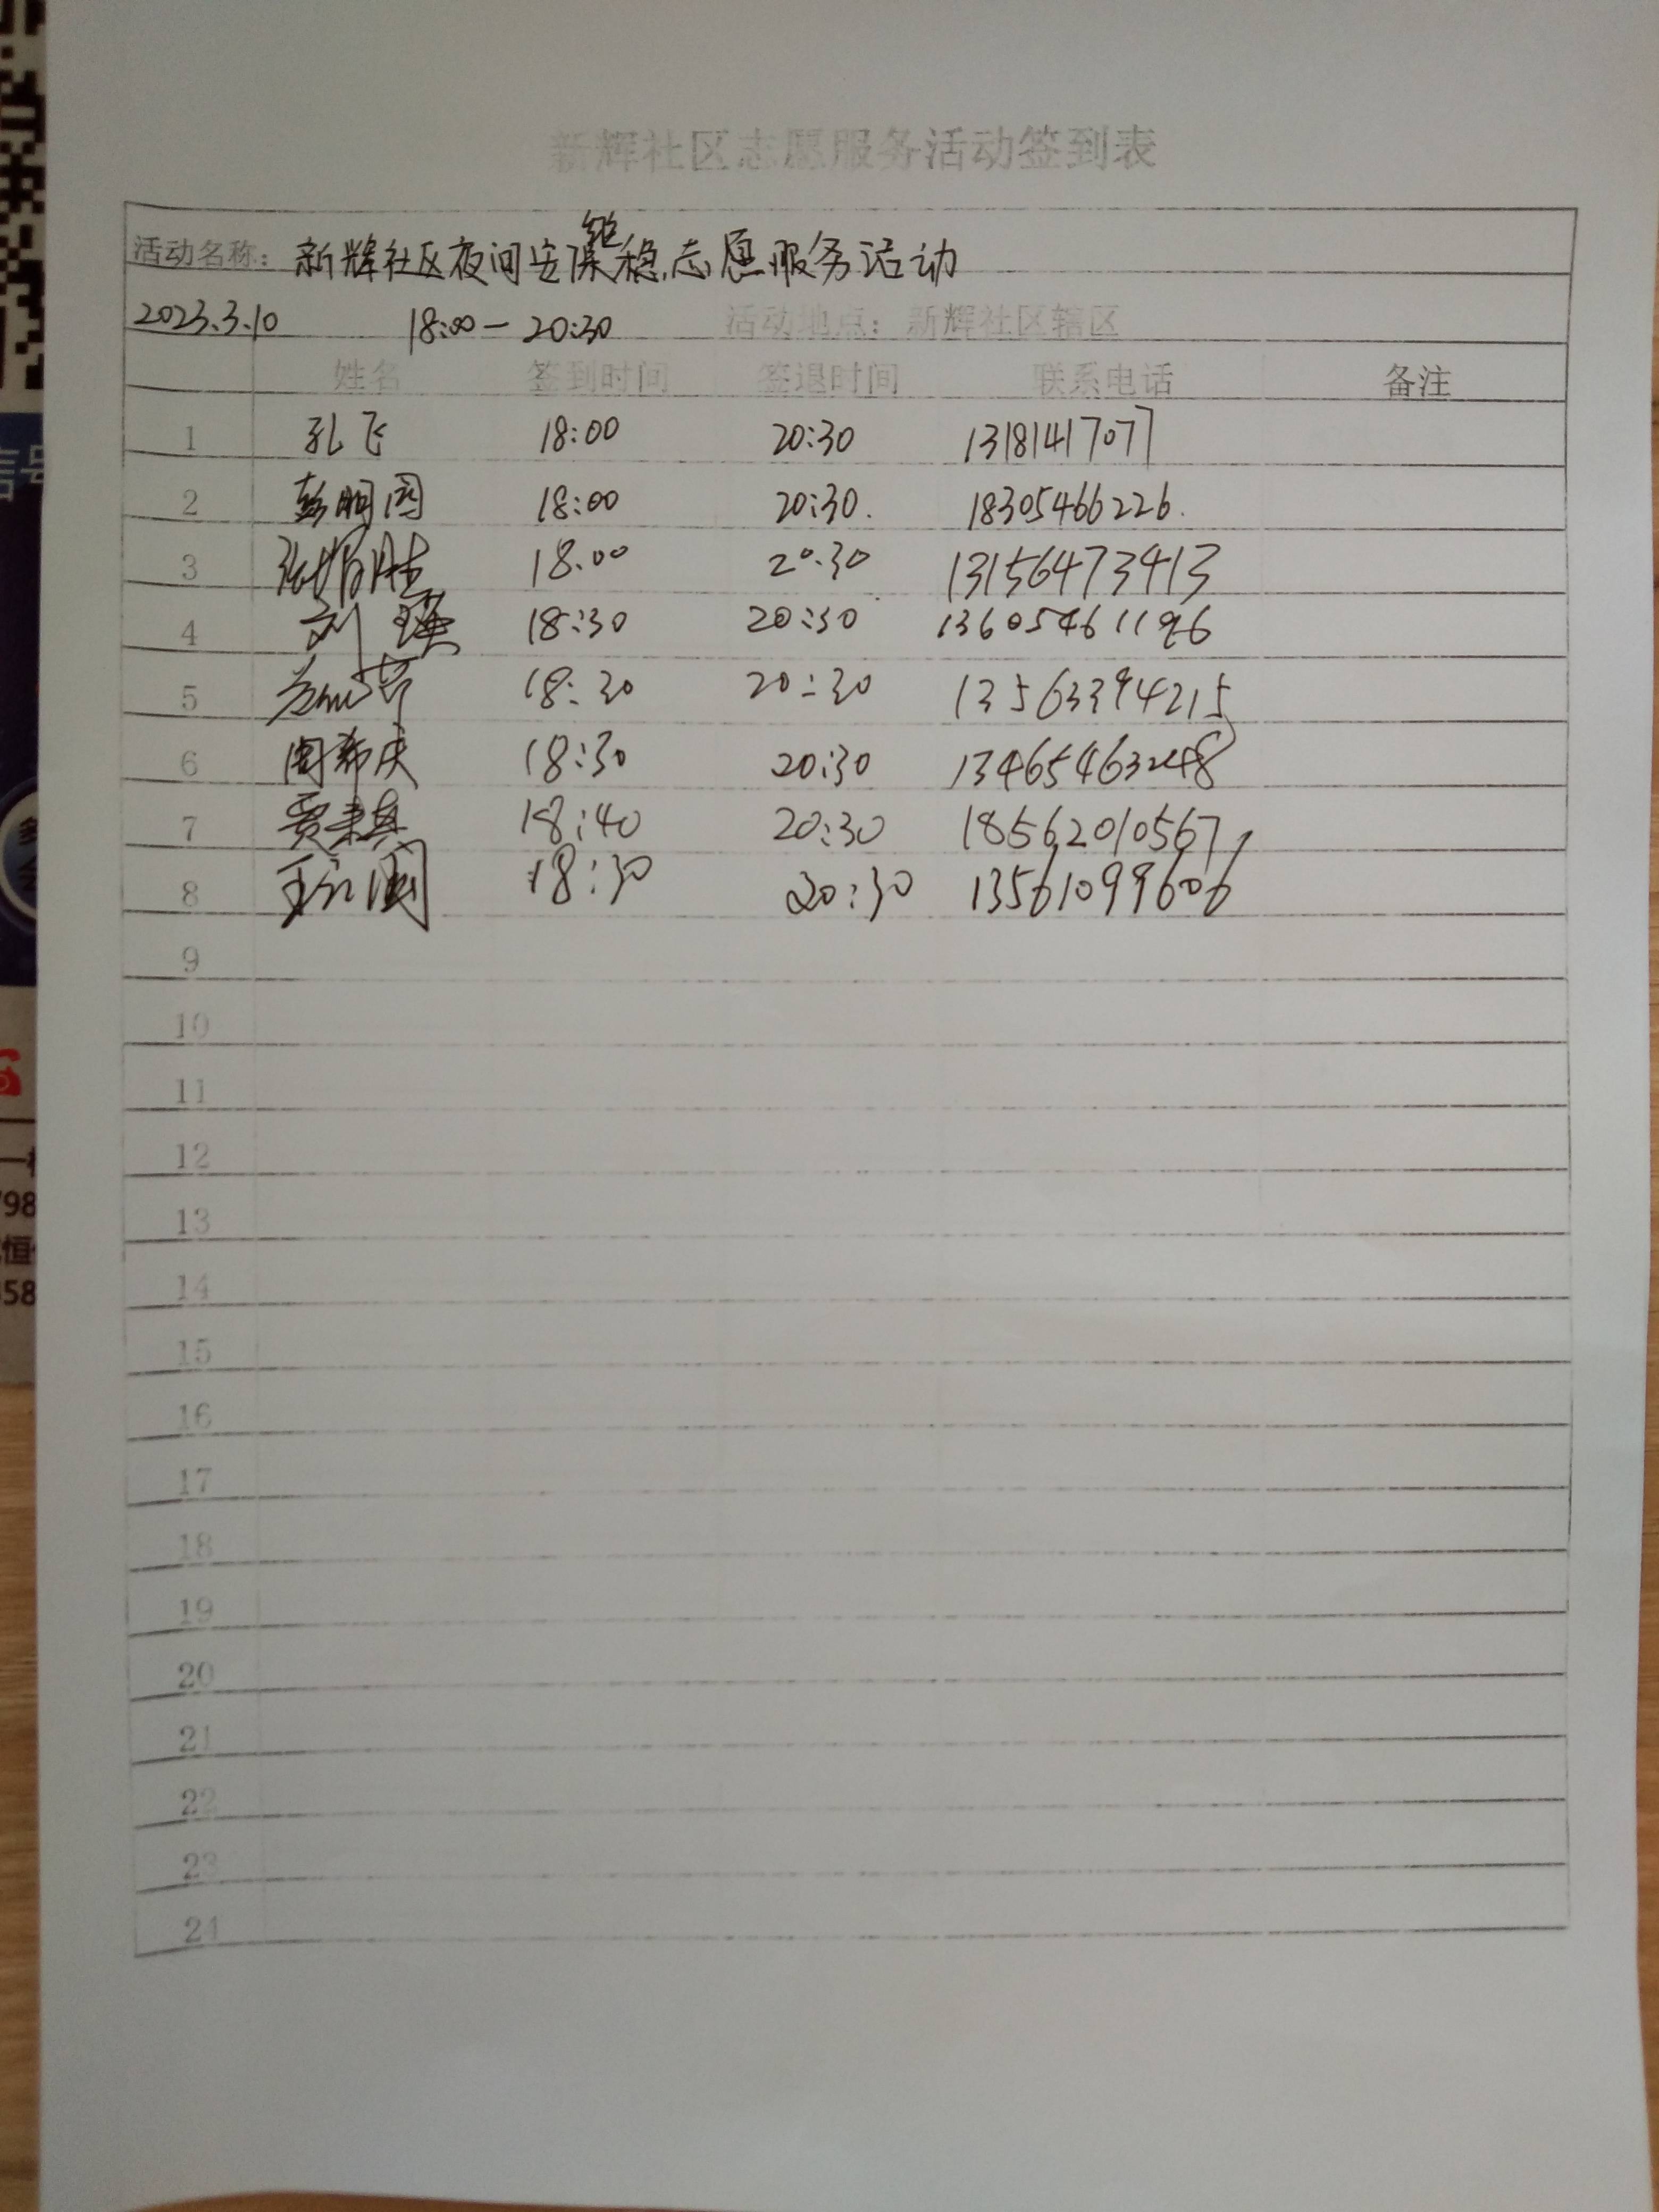 新辉社区志愿服务活动签到表
活动名称: 新辉社区夜间安保维稳志愿服务活动
2023.3.10 18:00-20:30 活动地点: 新辉社区辖区
姓名 签到时间 签退时间 联系电话 备注
1 孔飞 18:00 20:30 13181417077
2 彭明国 18:00 20:30. 18305466226.
3 18.00 20.30 13156473413
4 刘瑛 18:30 20:30 13605461196
5 18:30 20:30 13563394215
6 周希庆 18:30 20:30 13465463248
7 18:40 20:30 18562010567
8 18:30 20:30 13561099606
9
10
11
12
13
14
15
16
17
18
19
20
21
22
23
24
信号
798
恒
58